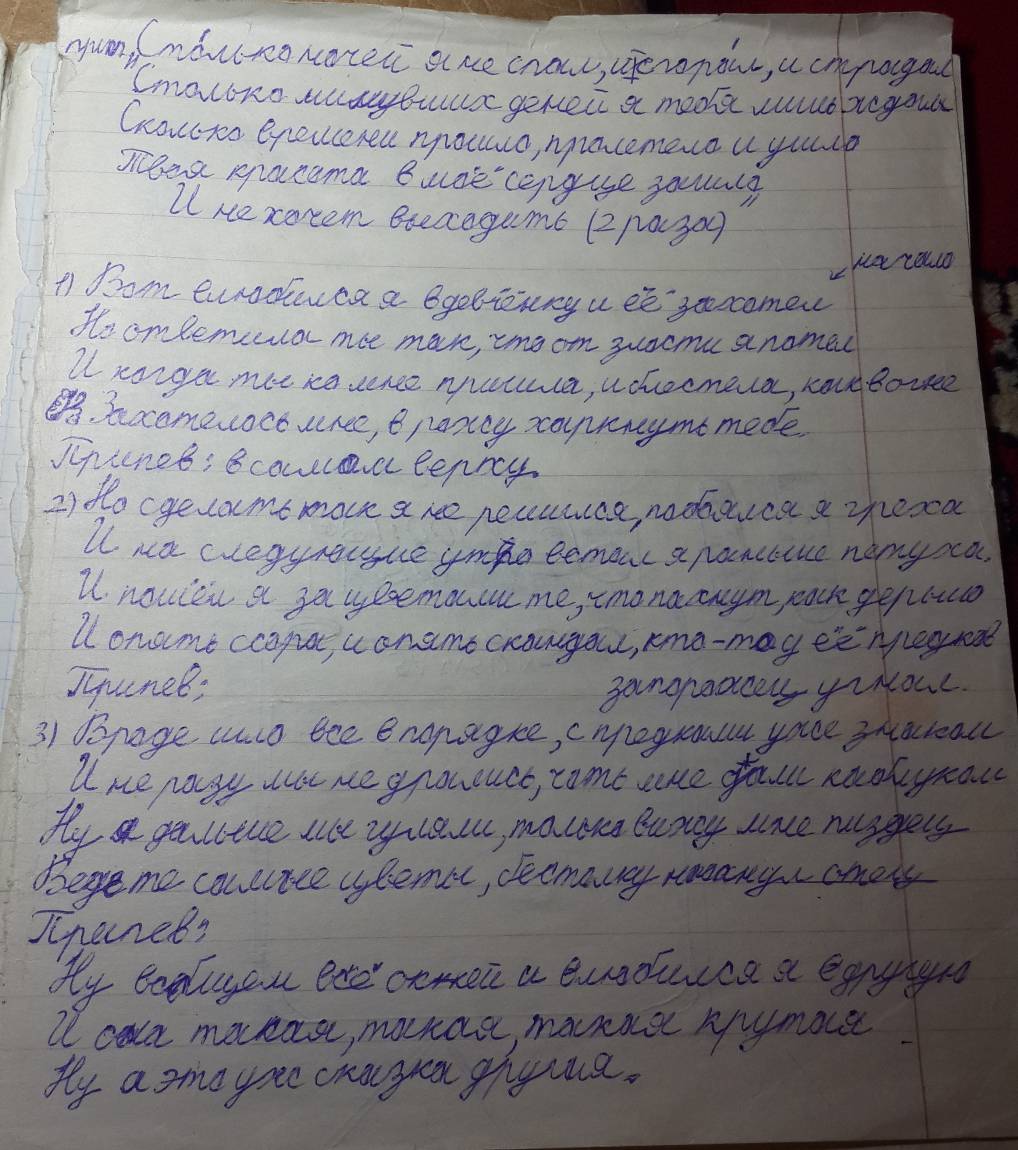 прип. „Столько ночей я не спал, и сгорал, и страдал
Столько минувших деней я тебя лишь ждал
Сколько времени прошло, пролетело и ушло
Твоя красата в моё сердце зашла”
И не хочет выходить (2 раза)
начало
1) Вот влюбился я в девчёнку и её захотел
Но ответила ты так, что от злости я потел
И когда ты ко мне пришла, и блестела, как в огне
Захотелось мне, в рожу харкнуть тебе.
Припев: в самом верху.
2) Но сделать так я не решился, побоялся я греха
И на следующие утро встал я раньше петуха.
И пошёл я за цветами те, что пахнут, как дерьмо
И опять ссора, и опять скандал, кто-то у её предков
Припев: запорожец угнал.
3) Вроде шло все в порядке, с предками уже знаком
И не разу мы не дрались, чуть мне дали каблуком
Ну я дальше мы гуляли, только вижу мне пиздец
Ведь те самые цветы, бестолку нюханул отец
Припев:
Ну вообщем всё окией и влюбился я в другую
И она такая, такая, такая крутая
Ну а это уже сказка другия.